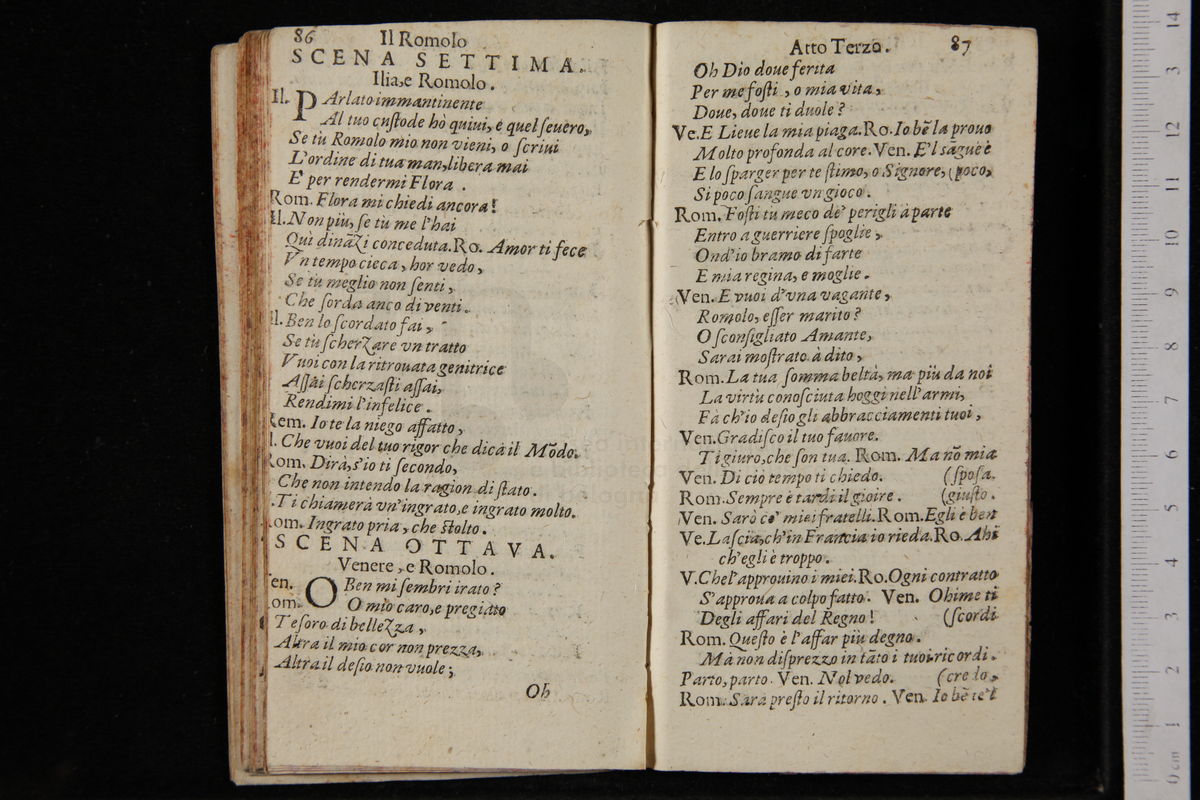 86 Il Romolo
SCENA SETTIMA.
Ilia, e Romolo.
Il. PArlato immantinente
Al tuo custode hò quiui, e quel seuero,
Se tù Romolo mio non vieni, o scriui
L'ordine di tua man, libera mai
E' per rendermi Flora .
Rom. Flora mi chiedi ancora!
Il. Non più, se tù me l'hai
Qui dinãzi conceduta. Ro. Amor ti fece
Vn tempo cieca, hor vedo,
Se tù meglio non senti,
Che sorda anco diventi.
Il. Ben lo scordato fai,
Se tù scherzare vn tratto
Vuoi con la ritrouata genitrice
Assai scherzasti assai,
Rendimi l'infelice.
Rem. Io te la niego affatto,
l. Che vuoi del tuo rigor che dica il Mõdo.
Rom. Dirà, s'io ti secondo,
Che non intendo la ragion di stato.
. Ti chiamerà vn'ingrato, e ingrato molto.
om. Ingrato pria, che stolto.
SCENA OTTAVA.
Venere, e Romolo.
en. O Ben mi sembri irato?
om. O mio caro, e pregiato
Tesoro di bellezza,
Altra il mio cor non prezza,
Altra il desio non vuole;
Oh
Atto Terzo. 87
Oh Dio doue ferita
Per me fosti, o mia vita,
Doue, doue ti duole?
Ve. E Lieue la mia piaga. Ro. Io bẽ la prouo
Molto profonda al core. Ven. E'l sãgue è
E lo sparger per te stimo, o Signore, (poco,
Si poco sangue vn gioco.
Rom. Fosti tù meco de' perigli à parte
Entro a guerriere spoglie,
Ond'io bramo di farte
E mia regina, e moglie.
Ven. E vuoi d'vna vagante,
Romolo, esser marito?
O sconsigliato Amante,
Sarai mostrato à dito,
Rom. La tua somma beltà, ma più da noi
La virtù conosciuta hoggi nell'armi,
Fà ch'io desio gli abbracciamenti tuoi,
Ven. Gradisco il tuo fauore.
Ti giuro, che son tua. Rom. Ma nõ mia
Ven. Di ciò tempo ti chiedo. (sposa.
Rom. Sempre è tardi il gioire. (giusto.
Ven. Sarò co' miei fratelli. Rom. Egli è ben
Ve. Lascia, ch'in Francia io rieda. Ro. Ahi
ch'egli è troppo.
V. Che l'approuino i miei. Ro. Ogni contratto
S'approua a colpo fatto. Ven. Ohime ti
Degli affari del Regno! (scordi
Rom. Questo è l'affar più degno.
Mà non disprezzo in tãto i tuoi ricordi.
Parto, parto. Ven. Nol vedo. (cre lo,
Rom. Sarà presto il ritorno. Ven. Io bẽ te'l